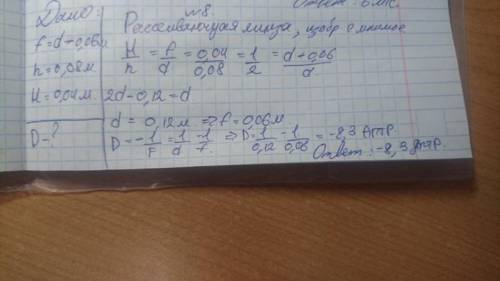 Ответ:
Дано:
f=d-0,06м
h=0,08м
H=0,04м
D-?
№8.
Рассеивающая линза, изобр мнимое
H/h = f/d = 0,04/0,08 = 1/2 = d-0,06/d
2d-0,12=d
d = 0,12м ⇒ f=0,06м
D=-1/F=1/d-1/f ⇒ D=1/0,12-1/0,06=-8,3дптр
Ответ: -8,3дптр.